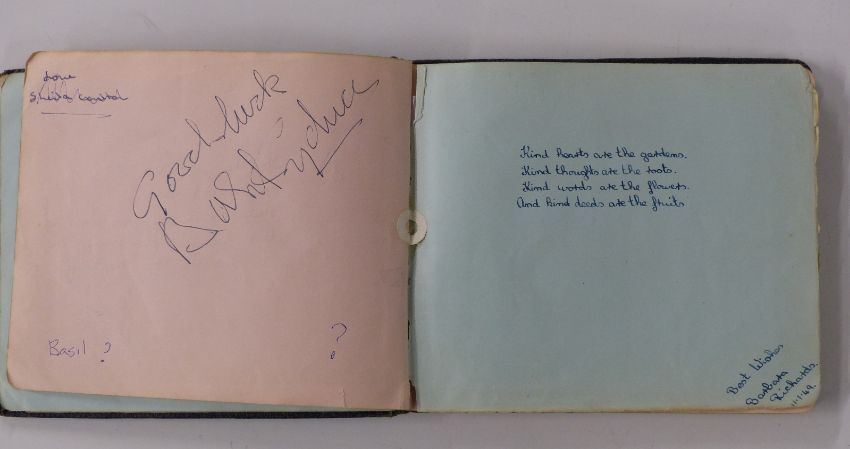 Love
Good luck
Basil ?
?
Kind hearts are the gardens.
Kind thoughts are the roots.
Kind words are the flowers.
And kind deeds are the fruits
Best Wishes
Barbara
Richards.
11-1-69.